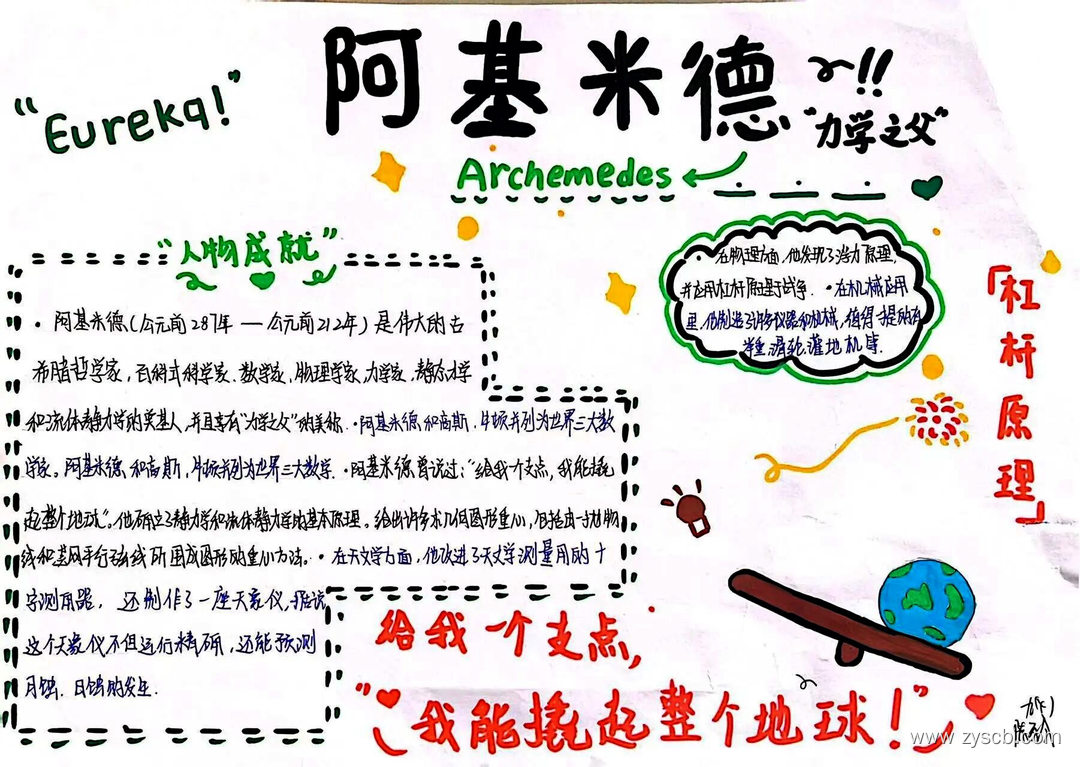 阿基米德 !!
"Eureka!"
"力学之父"
Archemedes
"人物成就"
·阿基米德(公元前287年—公元前212年)是伟大的古
希腊哲学家,百科式科学家、数学家,物理学家,力学家,静态力学
和流体静力学的奠基人,并且享有"力学之父"的美称.·阿基米德和高斯,牛顿并列为世界三大数
学家。阿基米德、和高斯,牛顿并列为世界三大数学.·阿基米德曾说过:"给我一个支点,我能撬
起整个地球"。他确立了静力学和流体静力学的基本原理。给出许多求几何图形重心,包括由一抛物
线和其网平行弦线所围成图形的重心方法。·在天文学方面,他改进了天文学测量用的十
字测角器,还制作了一座天象仪,据说
这个天象仪不但运行精确,还能预测
月蚀.日蚀的发生.
在物理方面,他发现了浮力原理,
并运用杠杆原理于战争.·在机械应用
里,他制造了许多仪器和机械,值得一提的有
举重滑轮,灌地机等.
「杠杆原理」
给我一个支点,
"我能撬起整个地球!"
www.zyscb.com